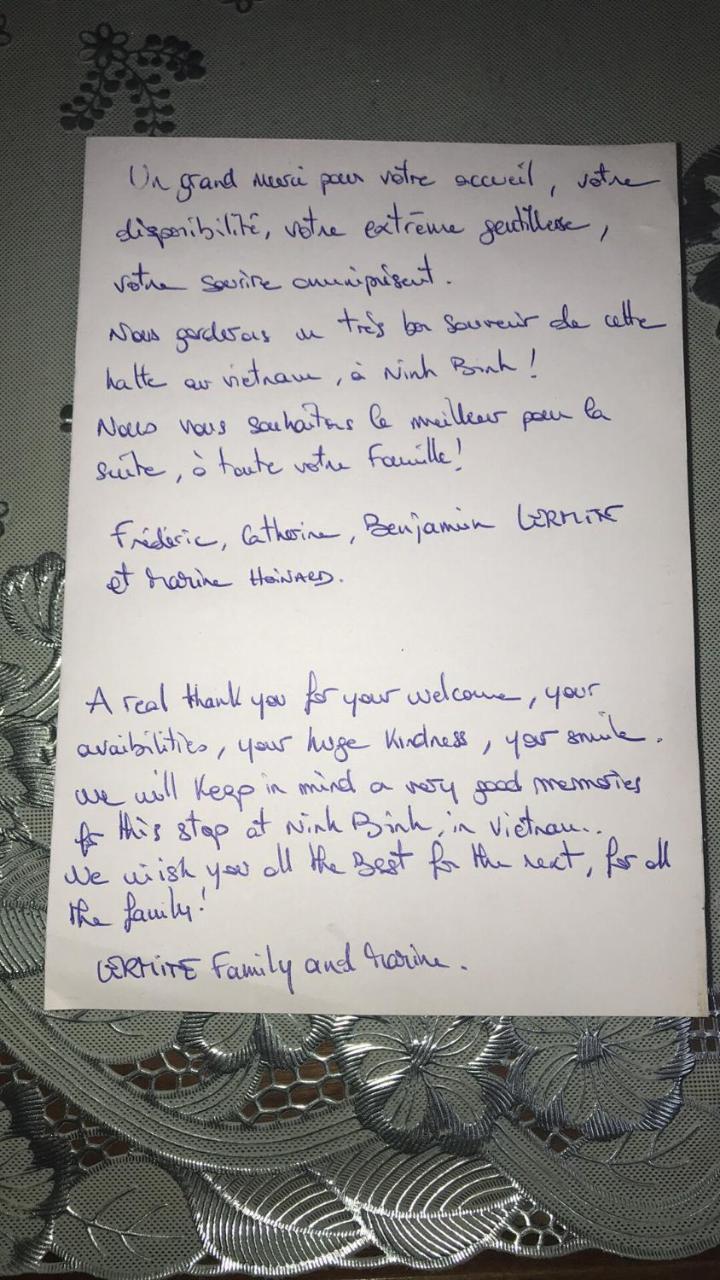 Un grand merci pour votre accueil, votre
disponibilité, votre extrême gentillesse,
votre sourire omniprésent.
Nous garderons un très bon souvenir de cette
halte au vietnam, à Ninh Binh !
Nous vous souhaitons le meilleur pour la
suite, à toute votre Famille !
Frédéric, Catherine, Benjamin LERMITE
et Marine
A real thank you for your welcome, your
avaibilities, your huge kindness, your smile.
we will keep in mind a very good memories
for this stop at Ninh Binh, in Vietnam..
We wish you all the Best for the next, for all
the family !
LERMITE Family and Marine.